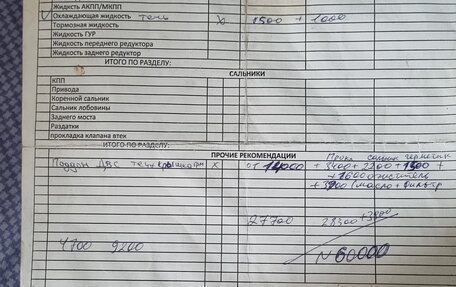 Жидксть АКПП/МКПП
Охлаждающая жидкость течь X 1500 + 1000
Тормозная жидкость
Жидкость ГУР
Жидкость переднего редуктора
Жидкость заднего редуктора
ИТОГО ПО РАЗДЕЛУ:
САЛЬНИКИ
КПП
Привода
Коренной сальник
Сальник лобовины
Заднего моста
Раздатки
прокладка клапана втек
ИТОГО ПО РАЗДЕЛУ:
ПРОЧИЕ РЕКОМЕНДАЦИИ
Поддон ДВС течь X от
+ 1600 очиститель
(масло + фильтр
27700 28300 + 3000
4700 9200
N 60000